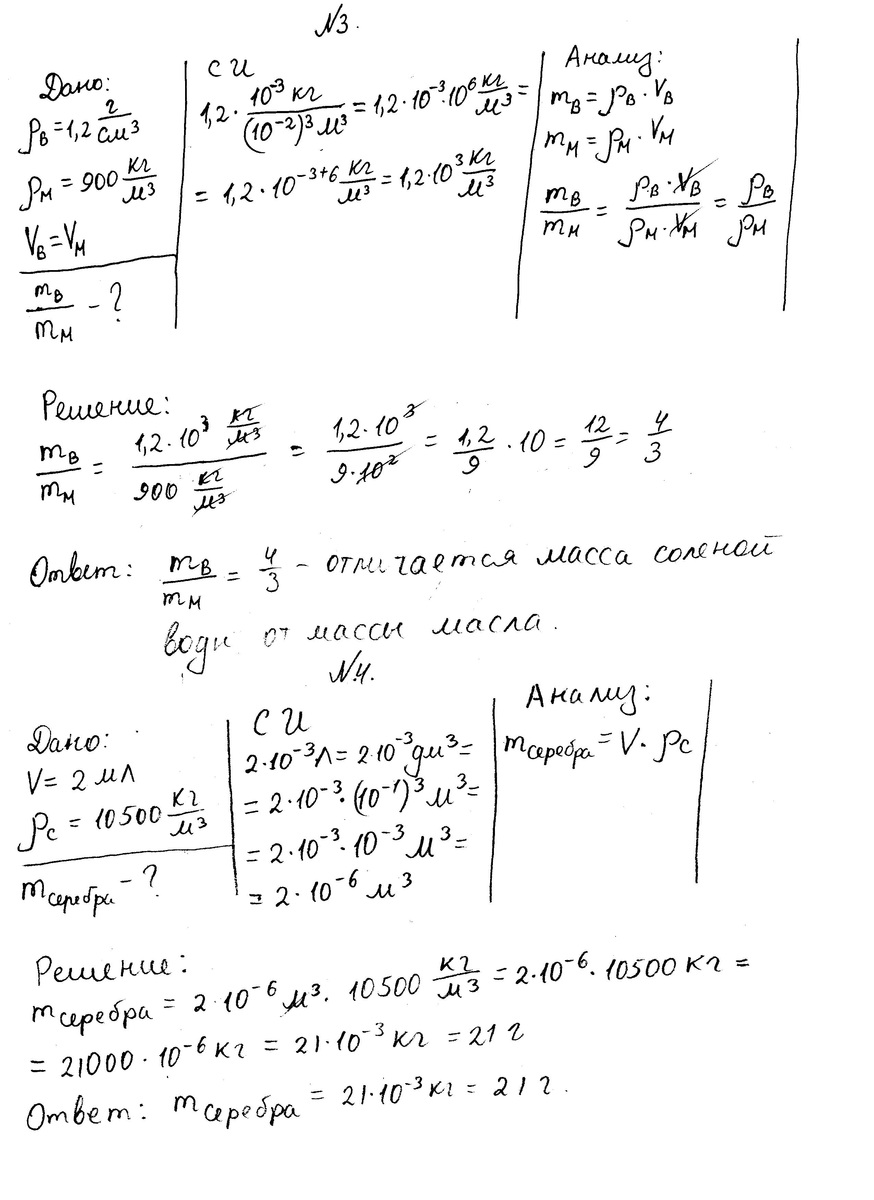 №3.
Дано:
ρв = 1,2 г/см³
ρм = 900 кг/м³
Vв = Vм
mв/mм - ?
СИ
1,2 · 10⁻³ кг/(10⁻²)³ м³ = 1,2 · 10⁻³ · 10⁶ кг/м³ =
= 1,2 · 10⁻³⁺⁶ кг/м³ = 1,2 · 10³ кг/м³
Анализ:
mв = ρв · Vв
mм = ρм · Vм
mв/mм = ρв · Vв/ρм · Vм = ρв/ρм
Решение:
mв/mм = 1,2 · 10³ кг/м³ / 900 кг/м³ = 1,2 · 10³/9 · 10² = 1,2/9 · 10 = 12/9 = 4/3
Ответ: mв/mм = 4/3 - отличается масса соленой
воды от массы масла.
№4.
Дано:
V = 2 мл
ρс = 10500 кг/м³
mсеребра - ?
СИ
2 · 10⁻³ л = 2 · 10⁻³ дм³ =
= 2 · 10⁻³ · (10⁻¹)³ м³ =
= 2 · 10⁻³ · 10⁻³ м³ =
= 2 · 10⁻⁶ м³
Анализ:
mсеребра = V · ρс
Решение:
mсеребра = 2 · 10⁻⁶ м³ · 10500 кг/м³ = 2 · 10⁻⁶ · 10500 кг =
= 21000 · 10⁻⁶ кг = 21 · 10⁻³ кг = 21 г
Ответ: mсеребра = 21 · 10⁻³ кг = 21 г.